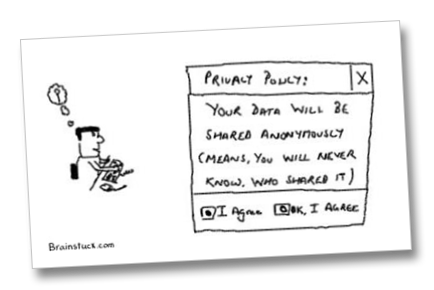 PRIVACY POLICY:
X
YOUR DATA WILL BE
SHARED ANONYMOUSLY
(MEANS, YOU WILL NEVER
KNOW, WHO SHARED IT)
I Agree OK, I AGREE
Brainstuck.com